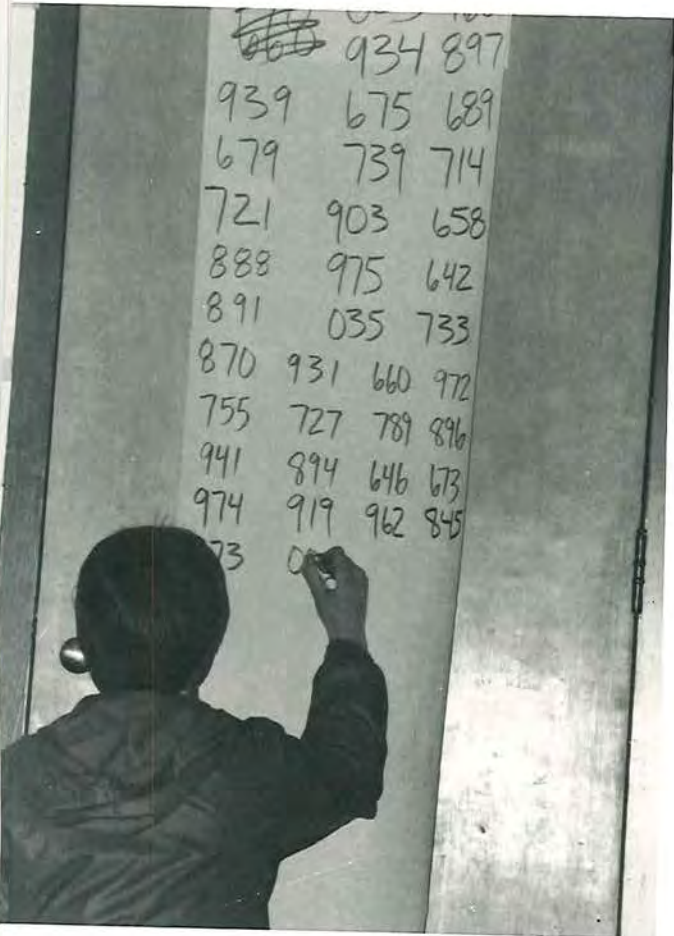 934 897
939 675 689
679 739 714
721 903 658
888 975 642
891 035 733
870 931 660 972
755 727 789 896
941 894 646 673
974 919 962 845